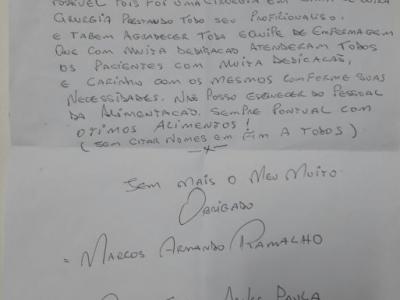 POSSÍVEL POIS FOI UMA CIRURGIA EM CIMA DE OUTRA
CIRURGIA PRESTANDO TODO SEU PROFISIONALISO.
E TABEM AGRADECER TODA EQUIPE DE ENFERMAGEM
QUE COM MUITA DEDICAÇÃO ATENDERAM TODOS
OS PACIENTES COM MUITA DEDICAÇÃO,
E CARINHO COM OS MESMOS CONFORME SUAS
NECESSIDADES. NÃO POSSO ESQUECER DO PESSOAL
DA ALIMENTAÇÃO. SEMPRE PONTUAL COM
OTIMOS ALIMENTOS!
(SEM CITAR NOMES EM FIM A TODOS)
SEM MAIS O MEU MUITO
OBRIGADO
= MARCOS ARMANDO RAMALHO
PAULA